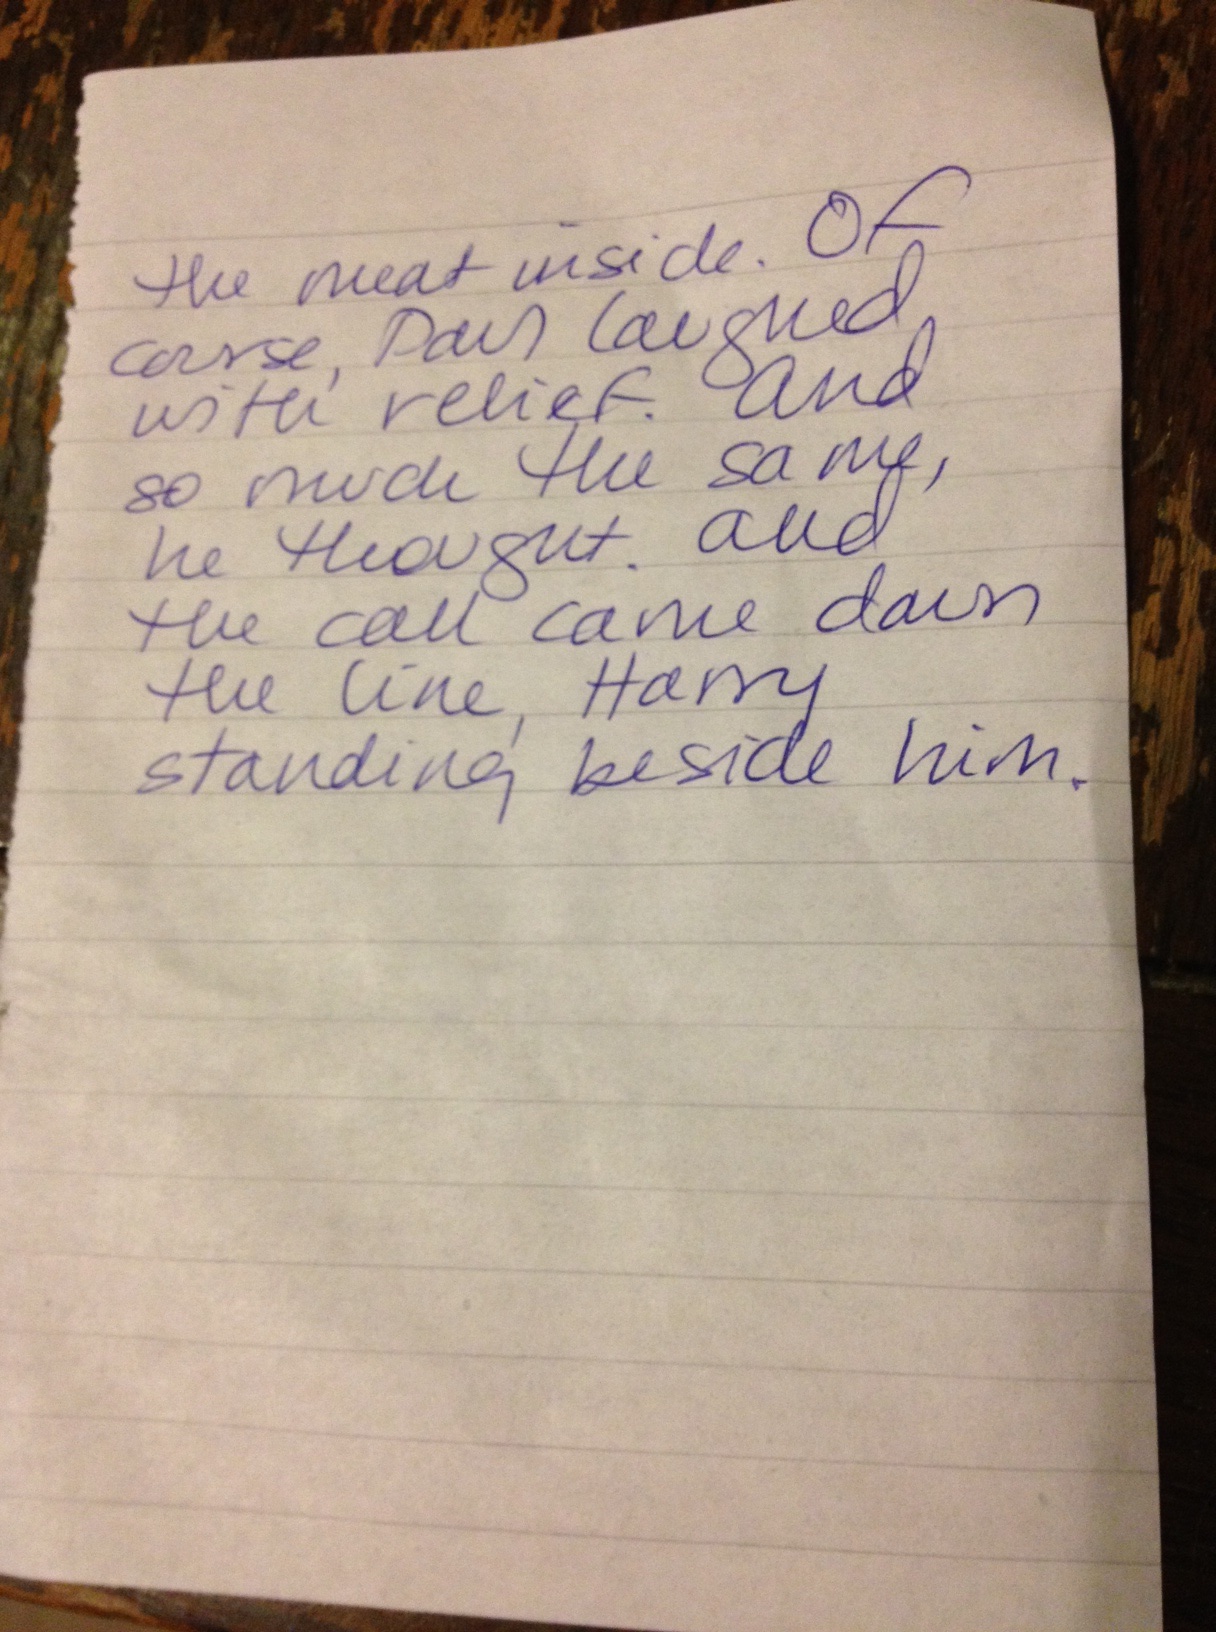 the meat inside. Of
course, Paul laughed
with relief. And
so much the same,
he thought. And
the call came down
the line, Harry
standing beside him.